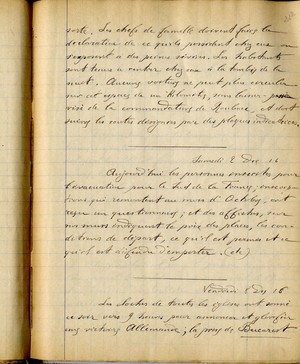 porte. Les chefs de famille doivent faire la
déclaration de ce qu'ils possèdent chez eux en
s'exposant à des peines sévères. Les habitants
sont tenus à rentrer chez eux à la tombée de la
nuit. Aucune voiture ne peut plus circuler
sur cet espace de un kilomètre, sans l'autori-
visé de la commandature de, et doit
suivre les routes désignées par des plaques indicatrices.
Samedi 2 Dez. 16
Aujourd'hui les personnes inscrites pour
l'évacuation pour le Sud de la France, inscrip-
tions qui remontent au mois d'Octobre, ont
reçu un questionnaire, et des affiches, sur
nos murs indiquent le poids des, les con-
ditions de départ, ce qu'il est permis et ce
qu'il est défendu d'emporter. (etc)
Vendredi 8 Dez. 16
Les cloches de toutes les églises ont sonné
ce soir vers 9 heures pour annoncer et glorifier
une victoire Allemande, la prise de Bucarest